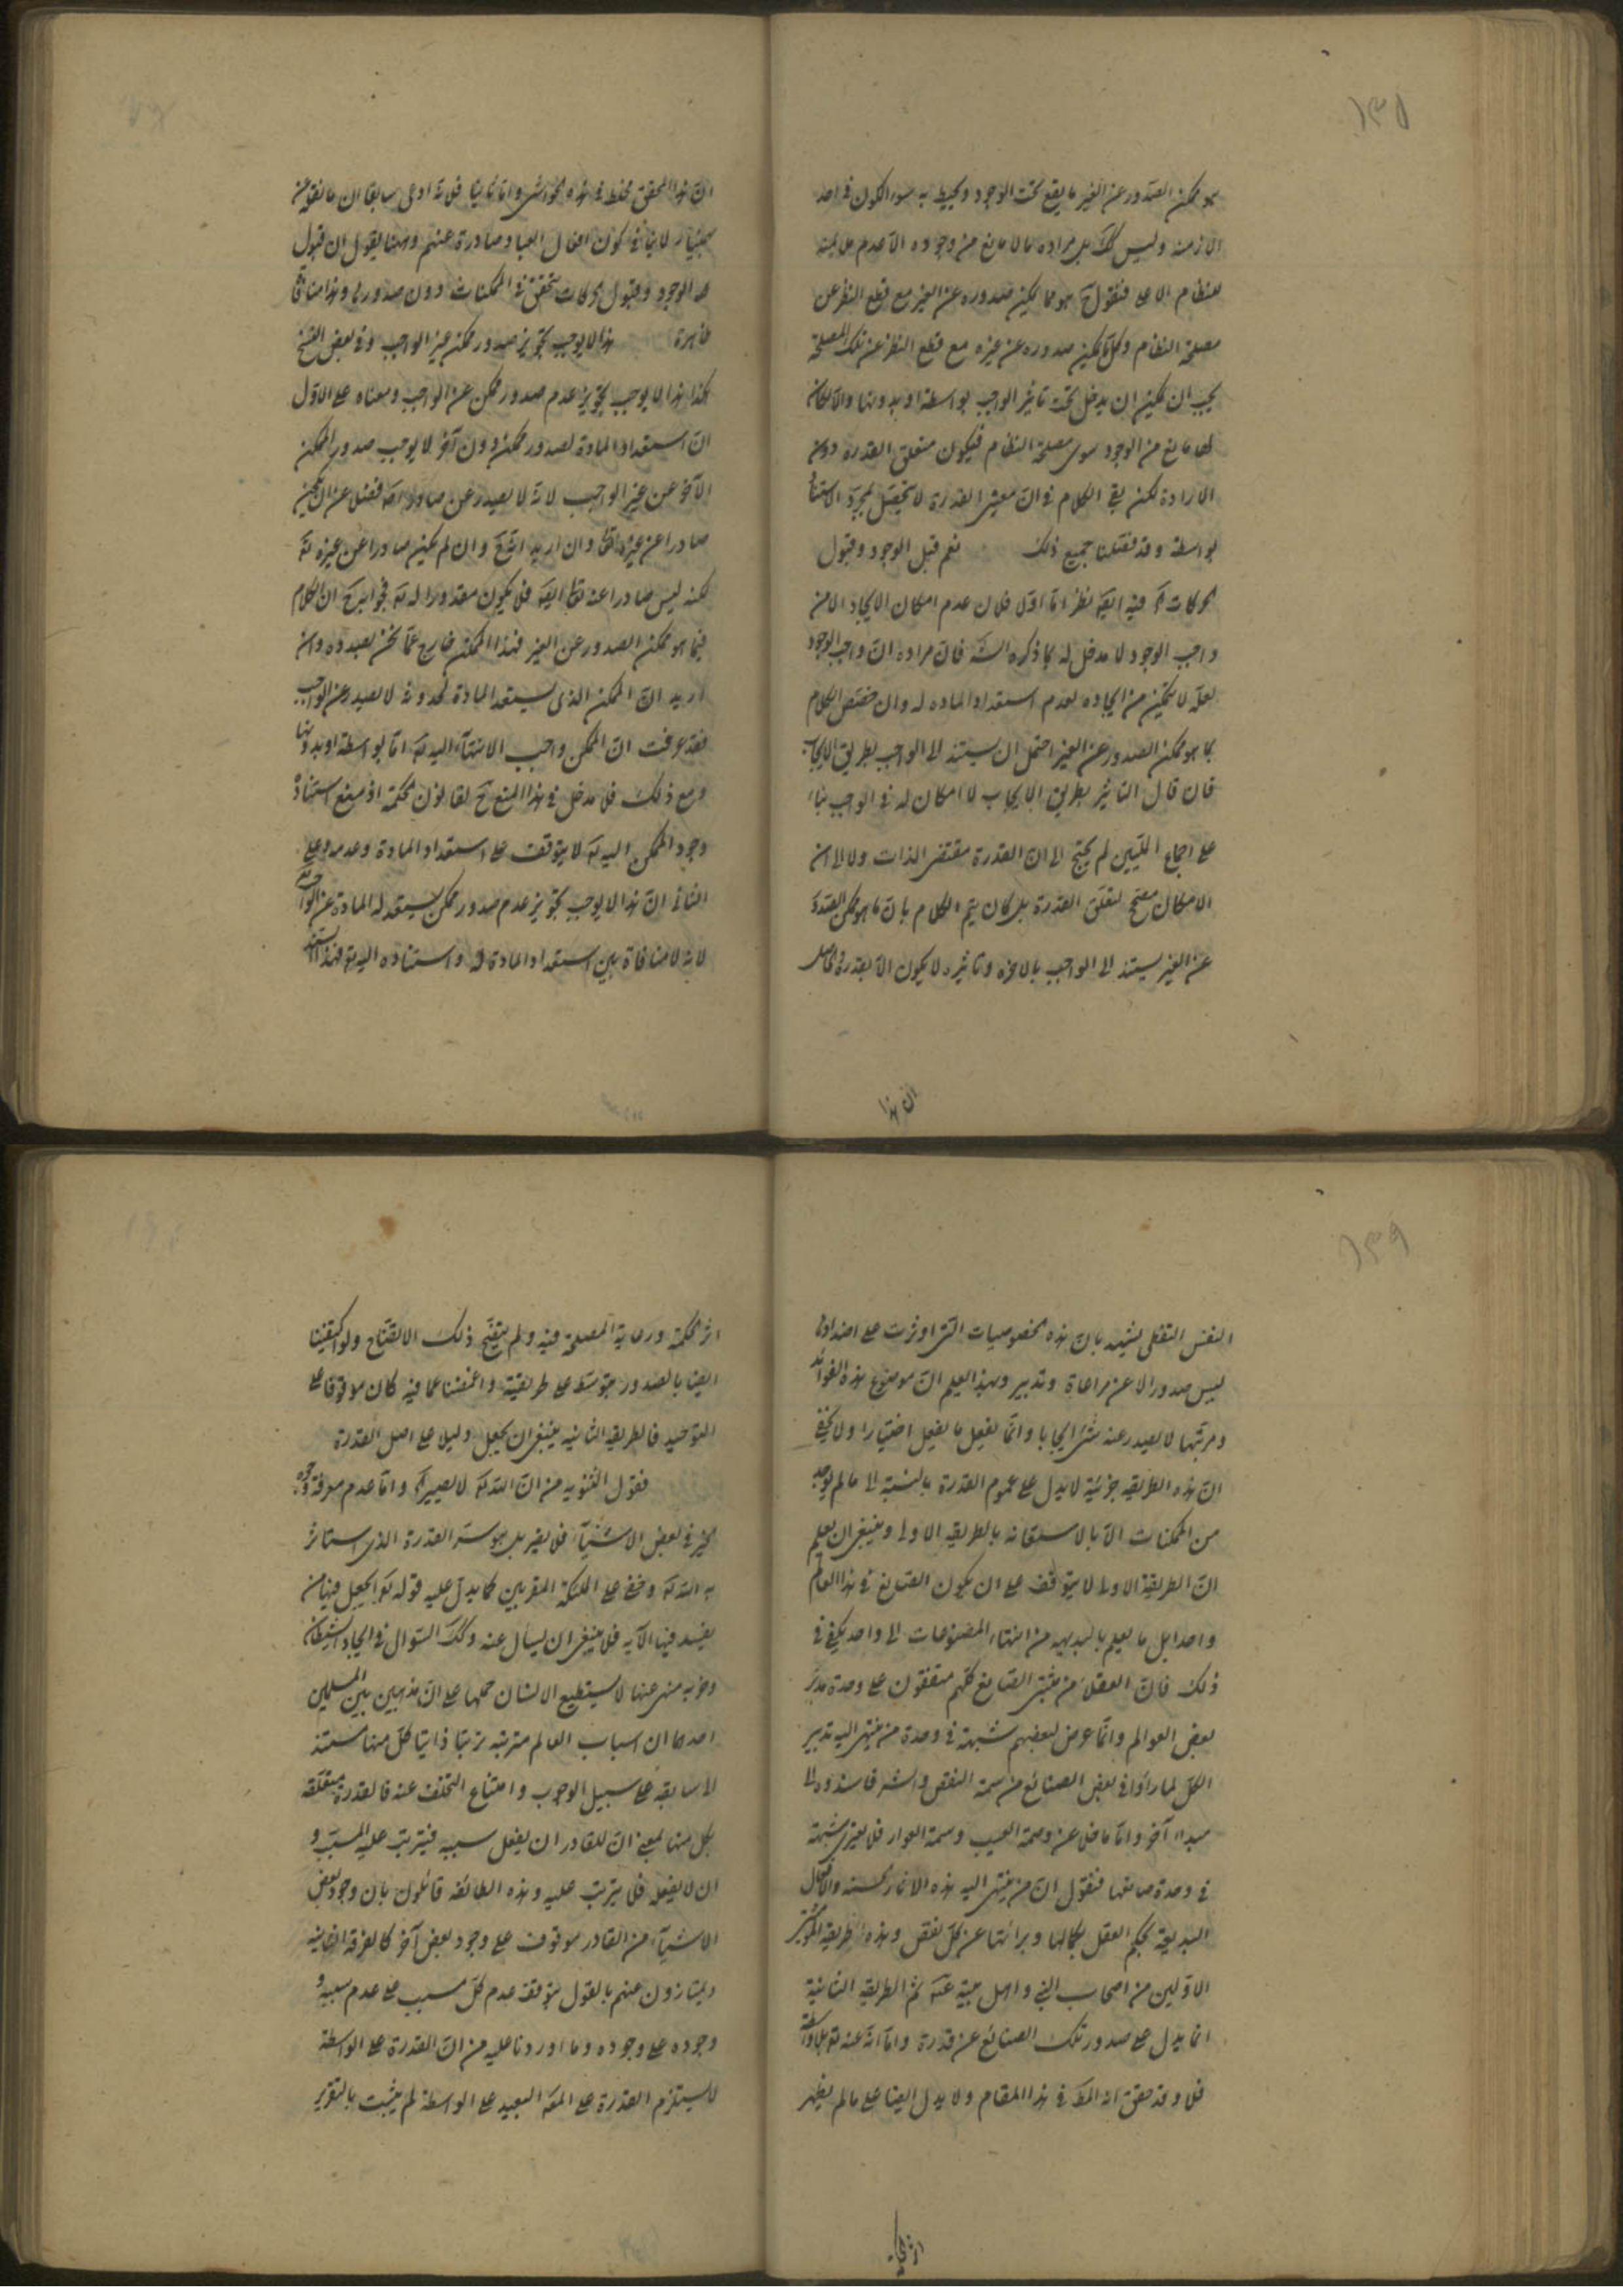 ١٣٥
هو ممكن الصدور عن الغير ما يقع تحت الوجود ويحيط به سور الكون في احد
الازمنة وليس كك بل مراده ما لا مانع من وجوده الا عدم ملايمته
للنظام الاعلى فنقول هو مما يمكن صدوره عن الغير مع قطع النظر عن
مصلحة النظام وكل ما يمكن صدوره عن غيره مع قطع النظر عن تلك المصلحة
يجب ان يمكن ان يدخل تحت تاثير الواجب بواسطة او بدونها والا لكان
لها مانع من الوجود سوى مصلحة النظام فيكون متعلق القدرة دون
الارادة لكن بقي الكلام في ان معنى القدرة لا يتحصل بمجرد الاستناد
بواسطة وقد فصلنا جميع ذلك نعم قبل الوجود وقبول
الحركات آه فيه ايضا نظر اما اولا فلان عدم امكان الايجاد الا من
واجب الوجود لا مدخل له بما ذكره الش فان مراده ان واجب الوجود
لعله لا يتمكن من ايجاده لعدم استعداد المادة له وان خصص الكلام
بما هو ممكن الصدور عن الغير احتمل ان يستند الى الواجب بطريق الايجاب
فان قال التاثير بطريق الايجاب لا امكان له في الواجب بناء
على اجماع المليين لم يحتج الى ان القدرة مقتضى الذات ولا الى ان
الامكان مصحح لتعلق القدرة بل كان يتم الكلام بان ما هو ممكن الصدور
عن الغير يستند الى الواجب بالاخرة وتاثيره لا يكون الا بقدرة
ان هذا
ان هذا المحقق في هذه الحواشي واما ثانيا فلانه ادعى سابقا ان ما نقل عن
بهمنيار لا ينافي كون افعال العباد صادرة عنهم وههنا يقول ان قبول
الوجود وقبول الحركات يتحقق في الممكنات دون صدورها وهذا مناقضة
ظاهرة هذا لا يوجب تجويز صدور ممكن عن غير الواجب وفي بعض النسخ
هكذا هذا لا يوجب تجويز عدم صدور ممكن عن الواجب ومعناه على الاول
ان استعداد المادة لصدور ممكن دون آخر لا يوجب صدور الممكن
الآخر عن غير الواجب لانه لا يصدر عن صادر اصلا فضلا عن ان يكون
صادرا عن غيره تعالى وان اريد انه وان لم يكن صادرا عن غيره تعالى
لكنه ليس صادرا عنه تعالى ايضا فلا يكون مقدورا له تعالى ان الكلام
فيما هو ممكن الصدور عن الغير فهذا الممكن خارج عما نحن بصدده وان
اريد ان الممكن الذي يستعد المادة لحدوثه لا يصدر عن الواجب
فقد عرفت ان الممكن واجب الانتهاء اليه تعالى اما بواسطة او بدونها
ومع ذلك فلا مدخل في هذا المنع لقانون الحكمة اذ منع استناد
وجود الممكن اليه تعالى لا يتوقف على استعداد المادة وعدمه وعلى
الثاني ان هذا لا يوجب تجويز عدم صدور ممكن يستعد له المادة عن الواجب
لانه لا منافاة بين استعداد المادة له واستناده اليه
١٣٩
النفس التفطن يشهد بان هذه الخصوصيات التي اوثرت على اضدادها
ليس صدورا الا عن مراعاة وتدبير وبهذا يعلم ان موضوع هذه الفوائد
ومرتبها لا يصدر عنه شئ ايجابا وانما يفعل ما يفعل اختيارا ولا يخفى
ان هذه الطريقة جزئية لا يدل على عموم القدرة بالنسبة الى ما لم يوجد
من الممكنات الا بالاستعانة بالطريقة الاولى وينبغي ان يعلم
ان الطريقة الاولى لا يتوقف على ان يكون الصانع في هذا العالم
واحدا بل ما يعلم بالبديهة من انتهاء المصنوعات الى واحد يكفي في
ذلك فان العقلاء من مثبتي الصانع كلهم متفقون على وحدة مدبر
بعض العوالم وانما عرض لبعضهم شبهة في وحدة من ينتهي اليه تدبير
الكل لما راوا في بعض الصنائع من سمة النقص والشر فاسندوه الى
مبداء آخر واما ما خلا عن وصمة العيب وسمة العوار فلا يعتريه شبهة
في وحدة صانعها فنقول ان من ينتهي اليه هذه الآثار الحسنة والافعال
البديعة يحكم العقل بكمالها وبرائتها عن كل نقص وهذه طريقة
الاولين من اصحاب النبي واهل بيته ثم الطريقة الثانية
انما يدل على صدور تلك الصنائع عن قدرة واما انه عنه تعالى بلا واسطة
فلا وقد حقق انه المط في هذا المقام ولا يدل ايضا على ما لم يظهر
اثر الحكمة ورعاية المصلحة فيه ولم يتضح ذلك الاتضاح ولو اكتفينا
ايضا بالصدور بتوسط على طريقته واغمضنا عما فيه كان موقوفا على
التوحيد فالطريقة الثانية ينبغي ان يجعل دليلا على اصل القدرة
فقول الثنوية من ان الله تعالى لا يصير آه واما عدم معرفة وجه
الخير في بعض الاشياء فلا يضر بل هو سر القدرة الذي استاثر
به الله تعالى وخفي على الملئكة المقربين كما يدل عليه قوله تعالى اتجعل فيها من
يفسد فيها الآية فلا ينبغي ان يسأل عنه وكك السؤال في ايجاد الشيطان
وحزبه منهي عنها لا يستطيع الانسان حملها على ان مذهبين بين المسلمين
احدهما ان اسباب العالم مترتبة ترتبا ذاتيا كل منها مستند
الى سابقه على سبيل الوجوب وامتناع التخلف عنه فالقدرة متعلقة
بكل منها بمعنى ان للقادر ان يفعل سببه فيترتب عليه المسبب و
ان لا يفعله فلا يترتب عليه وهذه الطائفة قائلون بان وجود بعض
الاشياء من القادر موقوف على وجود بعض آخر كالفرقة الثانية
ويمتازون عنهم بالقول بتوقف عدم كل مسبب على عدم سببه و
وجوده على وجوده وما اوردنا عليه من ان القدرة على الواسطة
لا يستلزم القدرة على البعيد على الواسطة لم يثبت بالتقرير